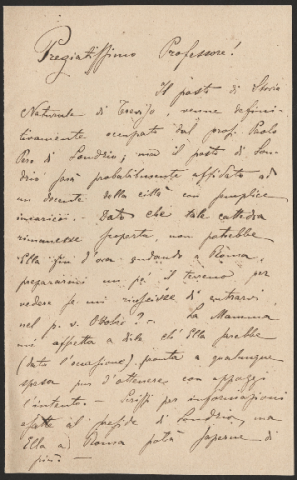 Pregiatissimo Professore!
Il posto di Storia
Naturale di Treviso, venne defini-
tivamente occupato dal prof. Paolo
Pero di Sondrio; ma il posto di Son-
drio sarà probabilmente affidato ad
un docente della città con semplice
incarico. Dato che tale cattedra
rimanesse scoperta, non potrebbe
Ella fin d'ora andando a Roma,
prepararmi un po' il terreno per
vedere se mi riuscisse di entrarvi
nel p. v. Ottobre? – La Mamma
mi affretta a dirle ch'Ella sarebbe
(data l'occasione), pronta a qualunque
spesa pur d'ottenere con appoggi
l'intento. – Scrissi per informazioni
esatte al preside di Sondrio, ma
Ella a Roma potrà saperne di
più. –